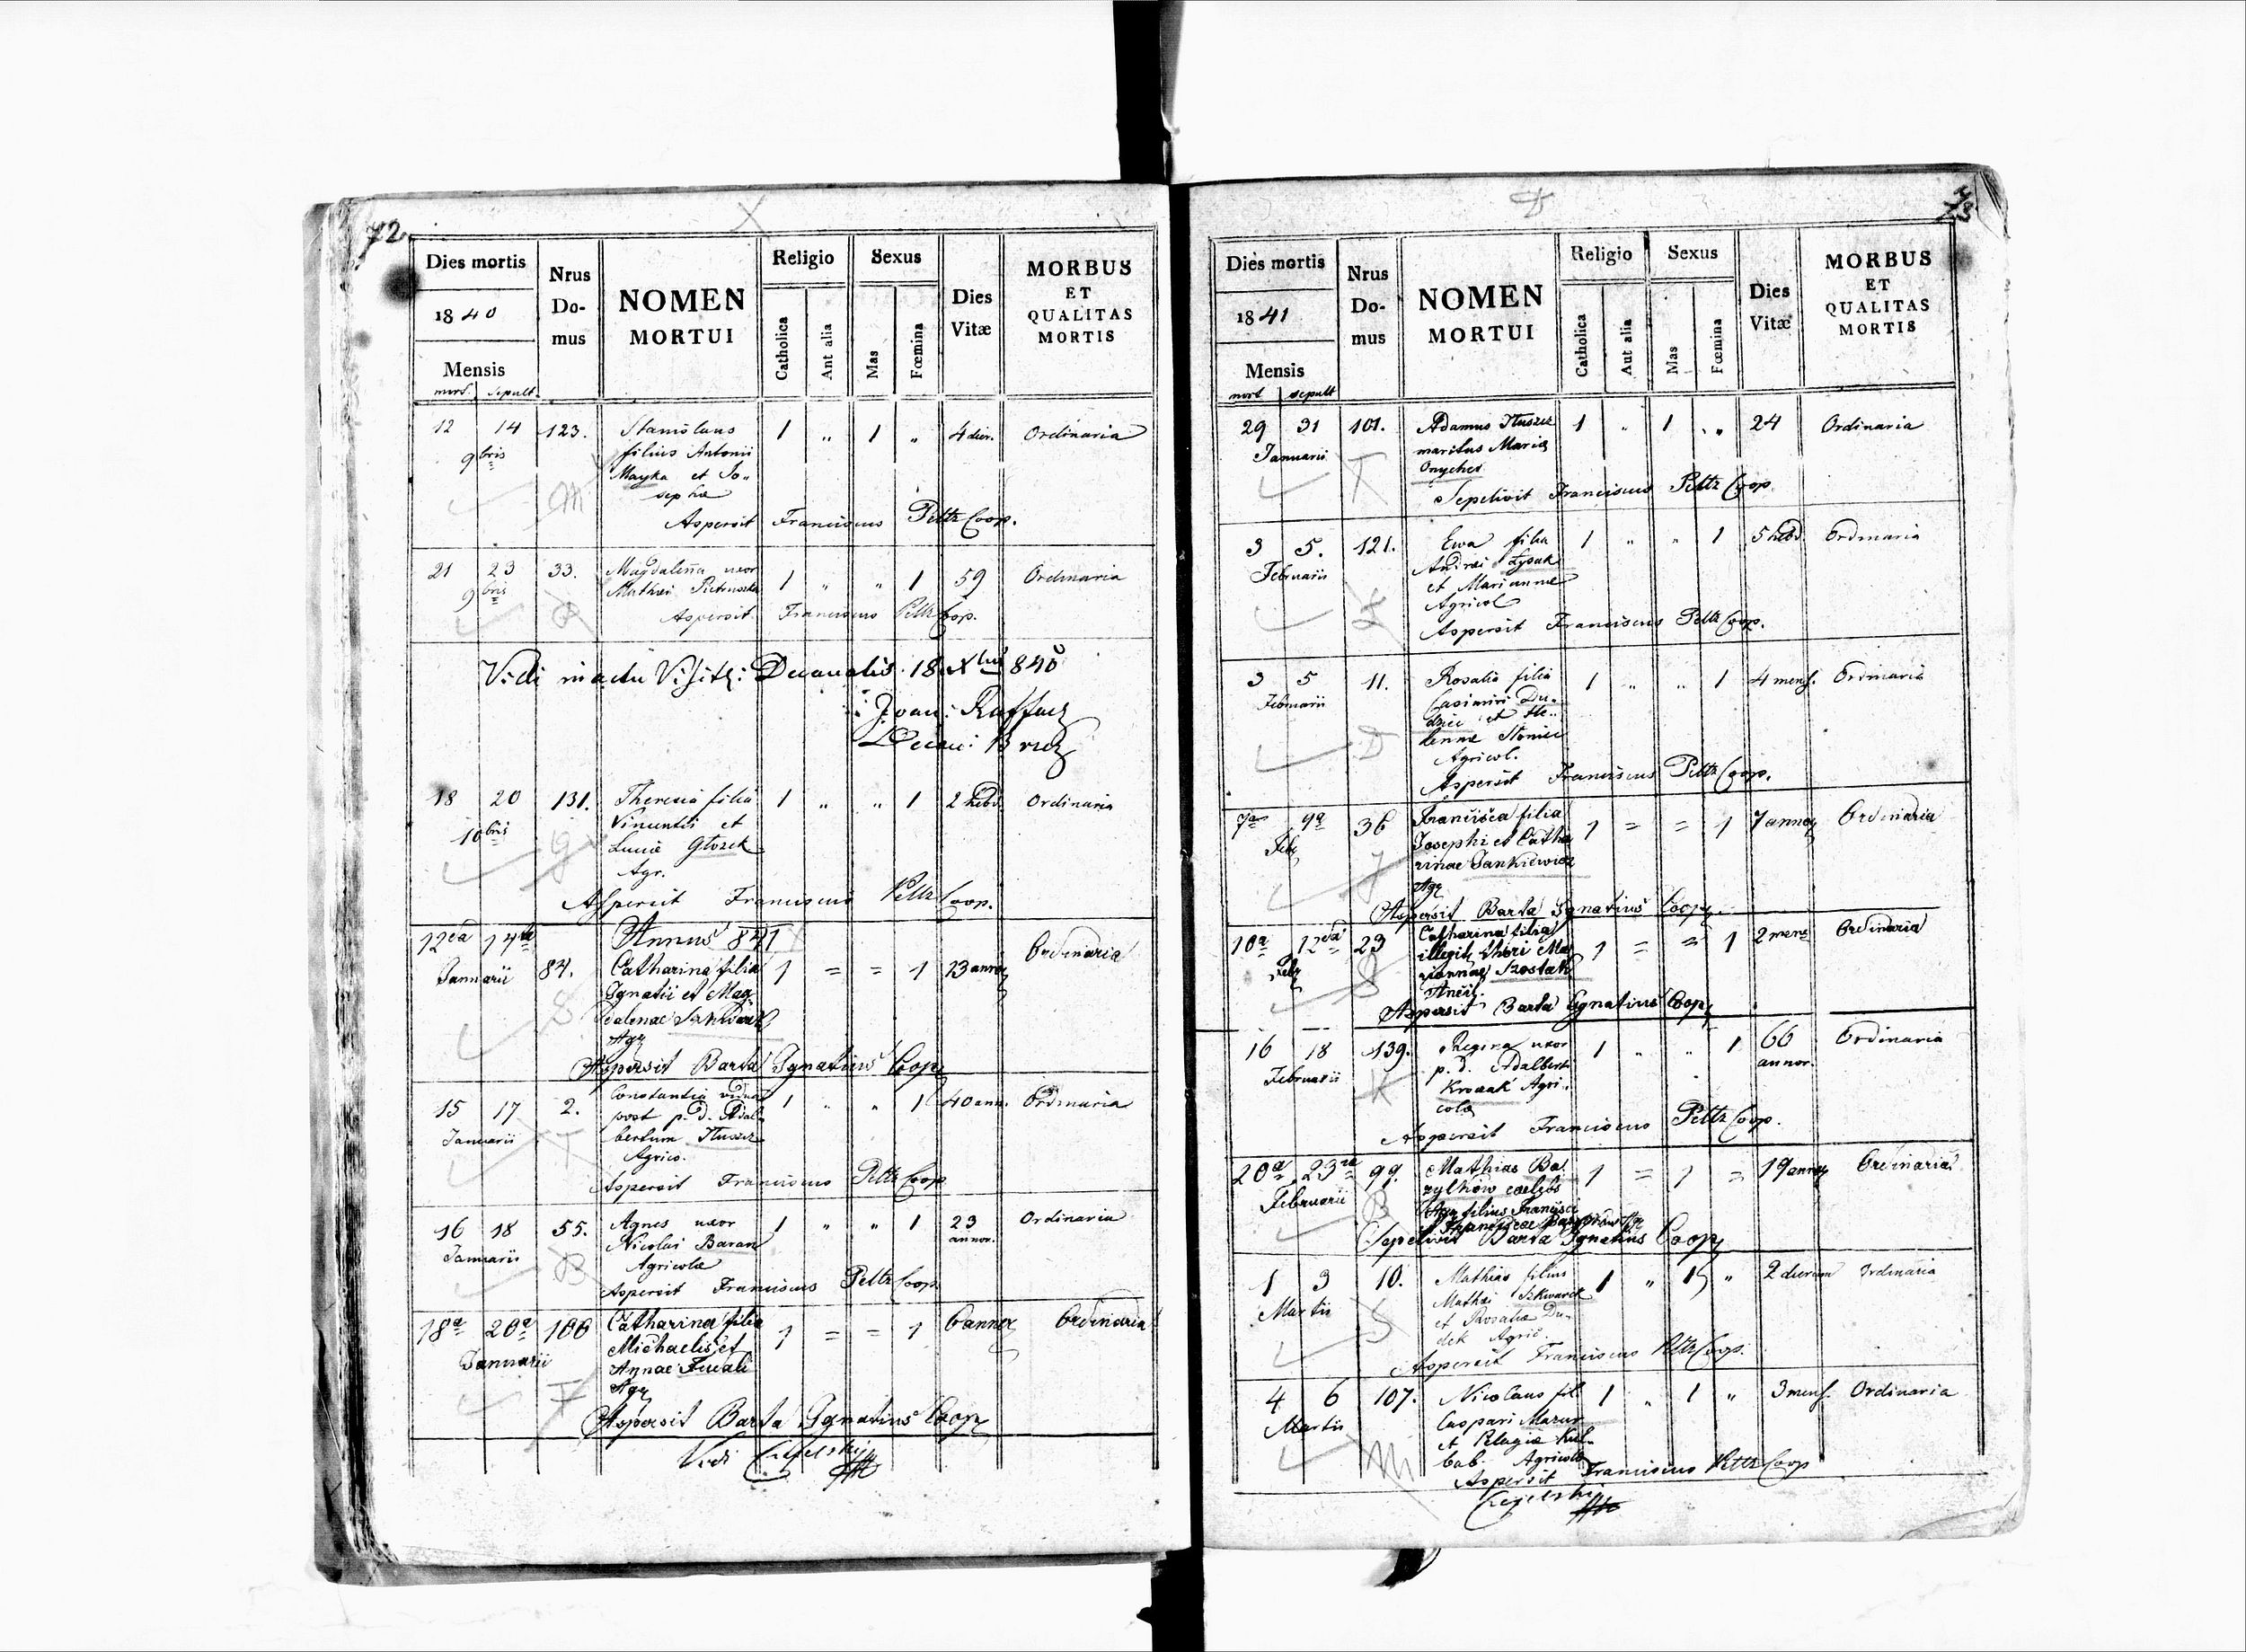 72.
Dies mortis
1840
Mensis
mort. sepult.
Nrus
Do-
mus
NOMEN
MORTUI
Religio
Catholica
Aut alia
Sexus
Mas
Fœmina
Dies
Vitæ
MORBUS
ET
QUALITAS
MORTIS
12 14 123. Stanislaus 1 " 1 " 4 dier. Ordinaria
9bris filius Antonii
Mayka et Jo„
sephæ
Aspersit Franciscus Peltz Coop.
21 23 33. Magdalena uxor 1 " " 1 59 Ordinaria
9bris Mathæi
Aspersit Franciscus Peltz Coop.
Vidi in actu Visit: Decanalis 18 Xbris 840
Joan: Raffacz
Decan:
18 20 131. Theresia filia 1 " " 1 2 hebd. Ordinaria
10bris Vincentii et
Luciæ Głozek
Agr.
Aspersit Franciscus Peltz Coop.
Annus 841
12ea 14ta 84. Catharina filia 1 = = 1 23 annor Ordinaria
Januarii Ignatii et Mag
dalenae Szkwark
Agr
Aspersit Barta Ignatius Coop
15 17 2. Constantia vidua 1 " " 1 40 ann. Ordinaria
Januarii post p. d. Adal
bertum Tłuszcz
Agrico.
Aspersit Franciscus Peltz Coop
16 18 55. Agnes uxor 1 " " 1 23 annor. Ordinaria
Januarii Nicolai Baran
Agricolæ
Aspersit Franciscus Peltz Coop
18a 20a 100 Catharina filia 1 = = 1 6 annor Ordinaria
Januarii Michaelis et
Annae
Agr
Aspersit Barta Ignatius Coop
Vidi
73
Dies mortis
1841
Mensis
mort sepult
Nrus
Do-
mus
NOMEN
MORTUI
Religio
Catholica
Aut alia
Sexus
Mas
Fœmina
Dies
Vitæ
MORBUS
ET
QUALITAS
MORTIS
29 31 101. Adamus Tłuszcz 1 " 1 " 24 Ordinaria
Januarii maritus Mariæ
Onyched
Sepelivit Franciscus Peltz Coop
3 5. 121. Ewa filia 1 " " 1 5 hebd Ordinaria
Februarii Andreæ Łysak
et Mariannæ
Agricol
Aspersit Franciscus Peltz Coop.
3 5 11. Rosalia filia 1 " " 1 4 mens. Ordinaria
Februarii Casimiri Du„
dziec et He„
lennæ Słomiec
Agricol.
Aspersit Franciscus Peltz Coop.
7a 9a 36 Francisca filia 1 = = 1 7 annor Ordinaria
Febr Josephi et Catha
rinae Jankiewicz
Agr
Aspersit Barta Ignatius Coop.
10a 12da 23 Catharina filia 1 = = 1 2 mens Ordinaria
Febr illegit thori Ma
riannae Szostak
Ancil.
Aspersit Barta Ignatius Coop
16 18 139. Regina uxor 1 " " 1 66 annor. Ordinaria
Februarii p. d. Adalberti
Krozak Agri„
colæ
Aspersit Franciscus Peltz Coop.
20a 23ia 99. Mathias Ba 1 = 1 = 19 annor Ordinaria
Februarii zylków caelebs
Agr filius Francisci
Sepelivit Barta Ignatius Coop
1 3 10. Mathias filius 1 " 1 " 2 dierum Ordinaria
Martii Mathæi Szkwarek
et Rosaliæ Du„
dek Agric.
Aspersit Franciscus Peltz Coop.
4 6 107. Nicolaus fil 1 " 1 " 3 mens. Ordinaria
Martii Caspari Mazur
et Pelagiæ Kul„
bab. Agricolæ
Aspersit Franciscus Peltz Coop